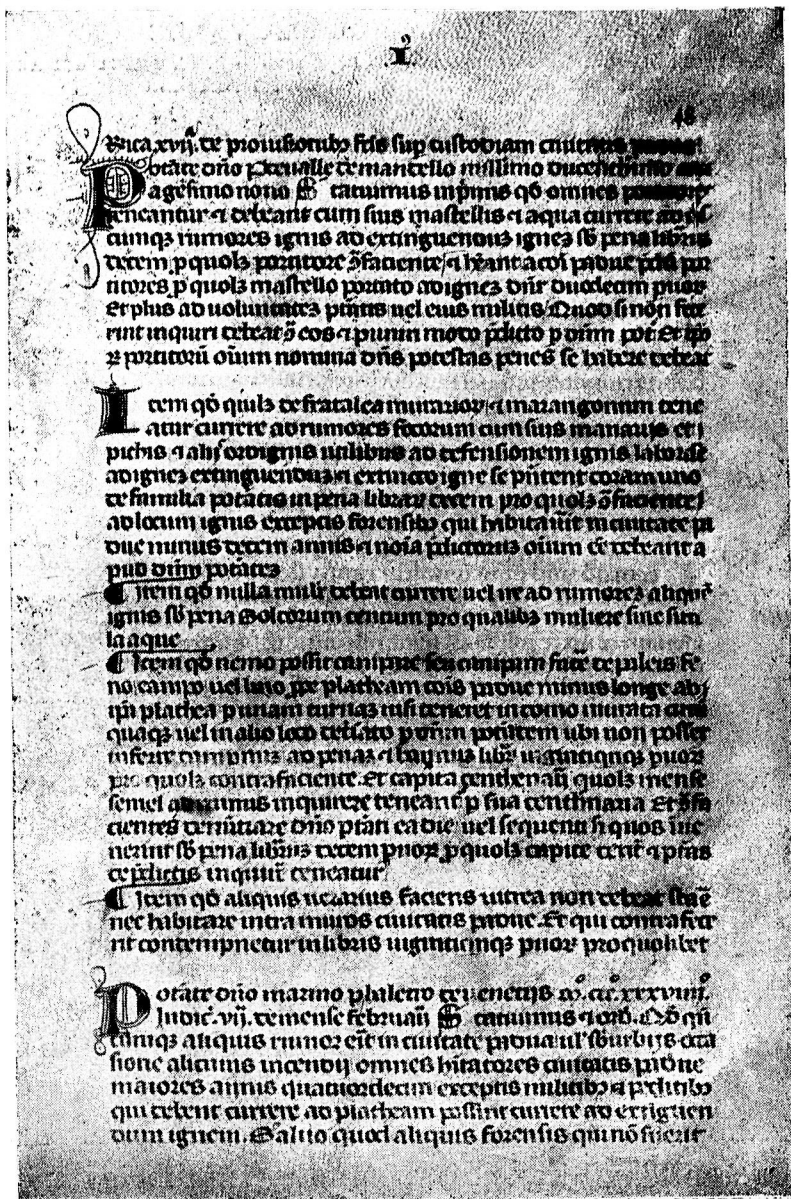 .I.
48
Rica .xvij. de prouisionibꝰ fcis sup custodiam ciuitatis
Potate dño Preualle de mancello millimo ducentesimo
agesimo nono Statuimus inprimis qđ omnes portitores
teneantur ⁊ debeant cum suis mastellis ⁊ aqua currere ad
cumqꝫ rumores ignis ad extinguendũ ignez sb pena libris
decem p quolꝫ portitore ꝯfaciente ⁊ hẽant a coi padue pdci por
titores p quolꝫ mastello portato ad ignez dñr duodecim puoꝝ
Et plus ad uoluntatez ptatis uel eius militis Quod si non fece
rint inquiri debeat ꝯ eos ⁊ puniri modo pdicto p dñm pot Et ipo
ꝝ portitorũ oium nomina dñs potestas penes se habere debeat
Item qđ quilꝫ de fratalea murarioꝝ ⁊ marangonum tene
atur currere ad rumores focorum cum suis manariis et i
pichis ⁊ aliis ordignis utilibus ad defensionem ignis laborare
ad ignez extinguenduꝫ ⁊ extincto igne se pñtent coram uno
de familia potatis in pena librar decem pro quolꝫ ꝯfaciente
ad locum ignis exceptis forensibꝰ qui habitauit in ciuitate pa
due minus decem annis ⁊ noia pdictorum oium eẽ debeant a
pud dñm potatez
¶ Item qđ nulla mulier debeat currere uel ire ad rumorez aliquẽ
ignis sb pena Soldorum centum pro qualibꝫ muliere sine situ
la aque
¶ Item qđ nemo possit canipare seu canipam facẽ de paleis fe
no canipo uel lino ppe plateam cois padue minus longe ab
ipa plathea p unam turnaꝫ nisi teneret in domo murata
quaqꝫ uel in alio loco deputato p dñm potatem ubi non posset
inferre dampnuꝫ ad penaꝫ ⁊ bannus libr uigintiqnqꝫ puoꝝ
pro quolꝫ contrafaciente. Et capita centhenarij quolꝫ mense
semel ad minus inquirere teneant p sua centenaria Et ꝯfa
cientes denuntiare dño ptati ea die uel sequenti si quos iue
nerint sb pena libris decem puoꝝ p quolꝫ capite cent ⁊ ptas
de pdictis inquir teneatur
¶ Item qđ aliquis uerarius faciens uitrea non debeat stare
nec habitare intra muros ciuitatis padue. Et qui contrafece
rit contempnetur in libris uigintiqnqꝫ puoꝝ pro quolibet
Potate dño marino phaletro de uenetiis mº. ccº. xxxviiijº.
Indic. vij. de mense februarij Statuimus ⁊ ord. Qđ qñ
cumqꝫ aliquis rumor erit in ciuitate padua ul sburbijs occa
sione alicuius incendij omnes hitatores ciuitatis padue
maiores annis quatuordecim exceptis militibꝰ ⁊ peditibꝰ
qui debent currere ad platheam possint currere ad extiguen
dum ignem. Saluo quod aliquis forensis qui nõ fuerit